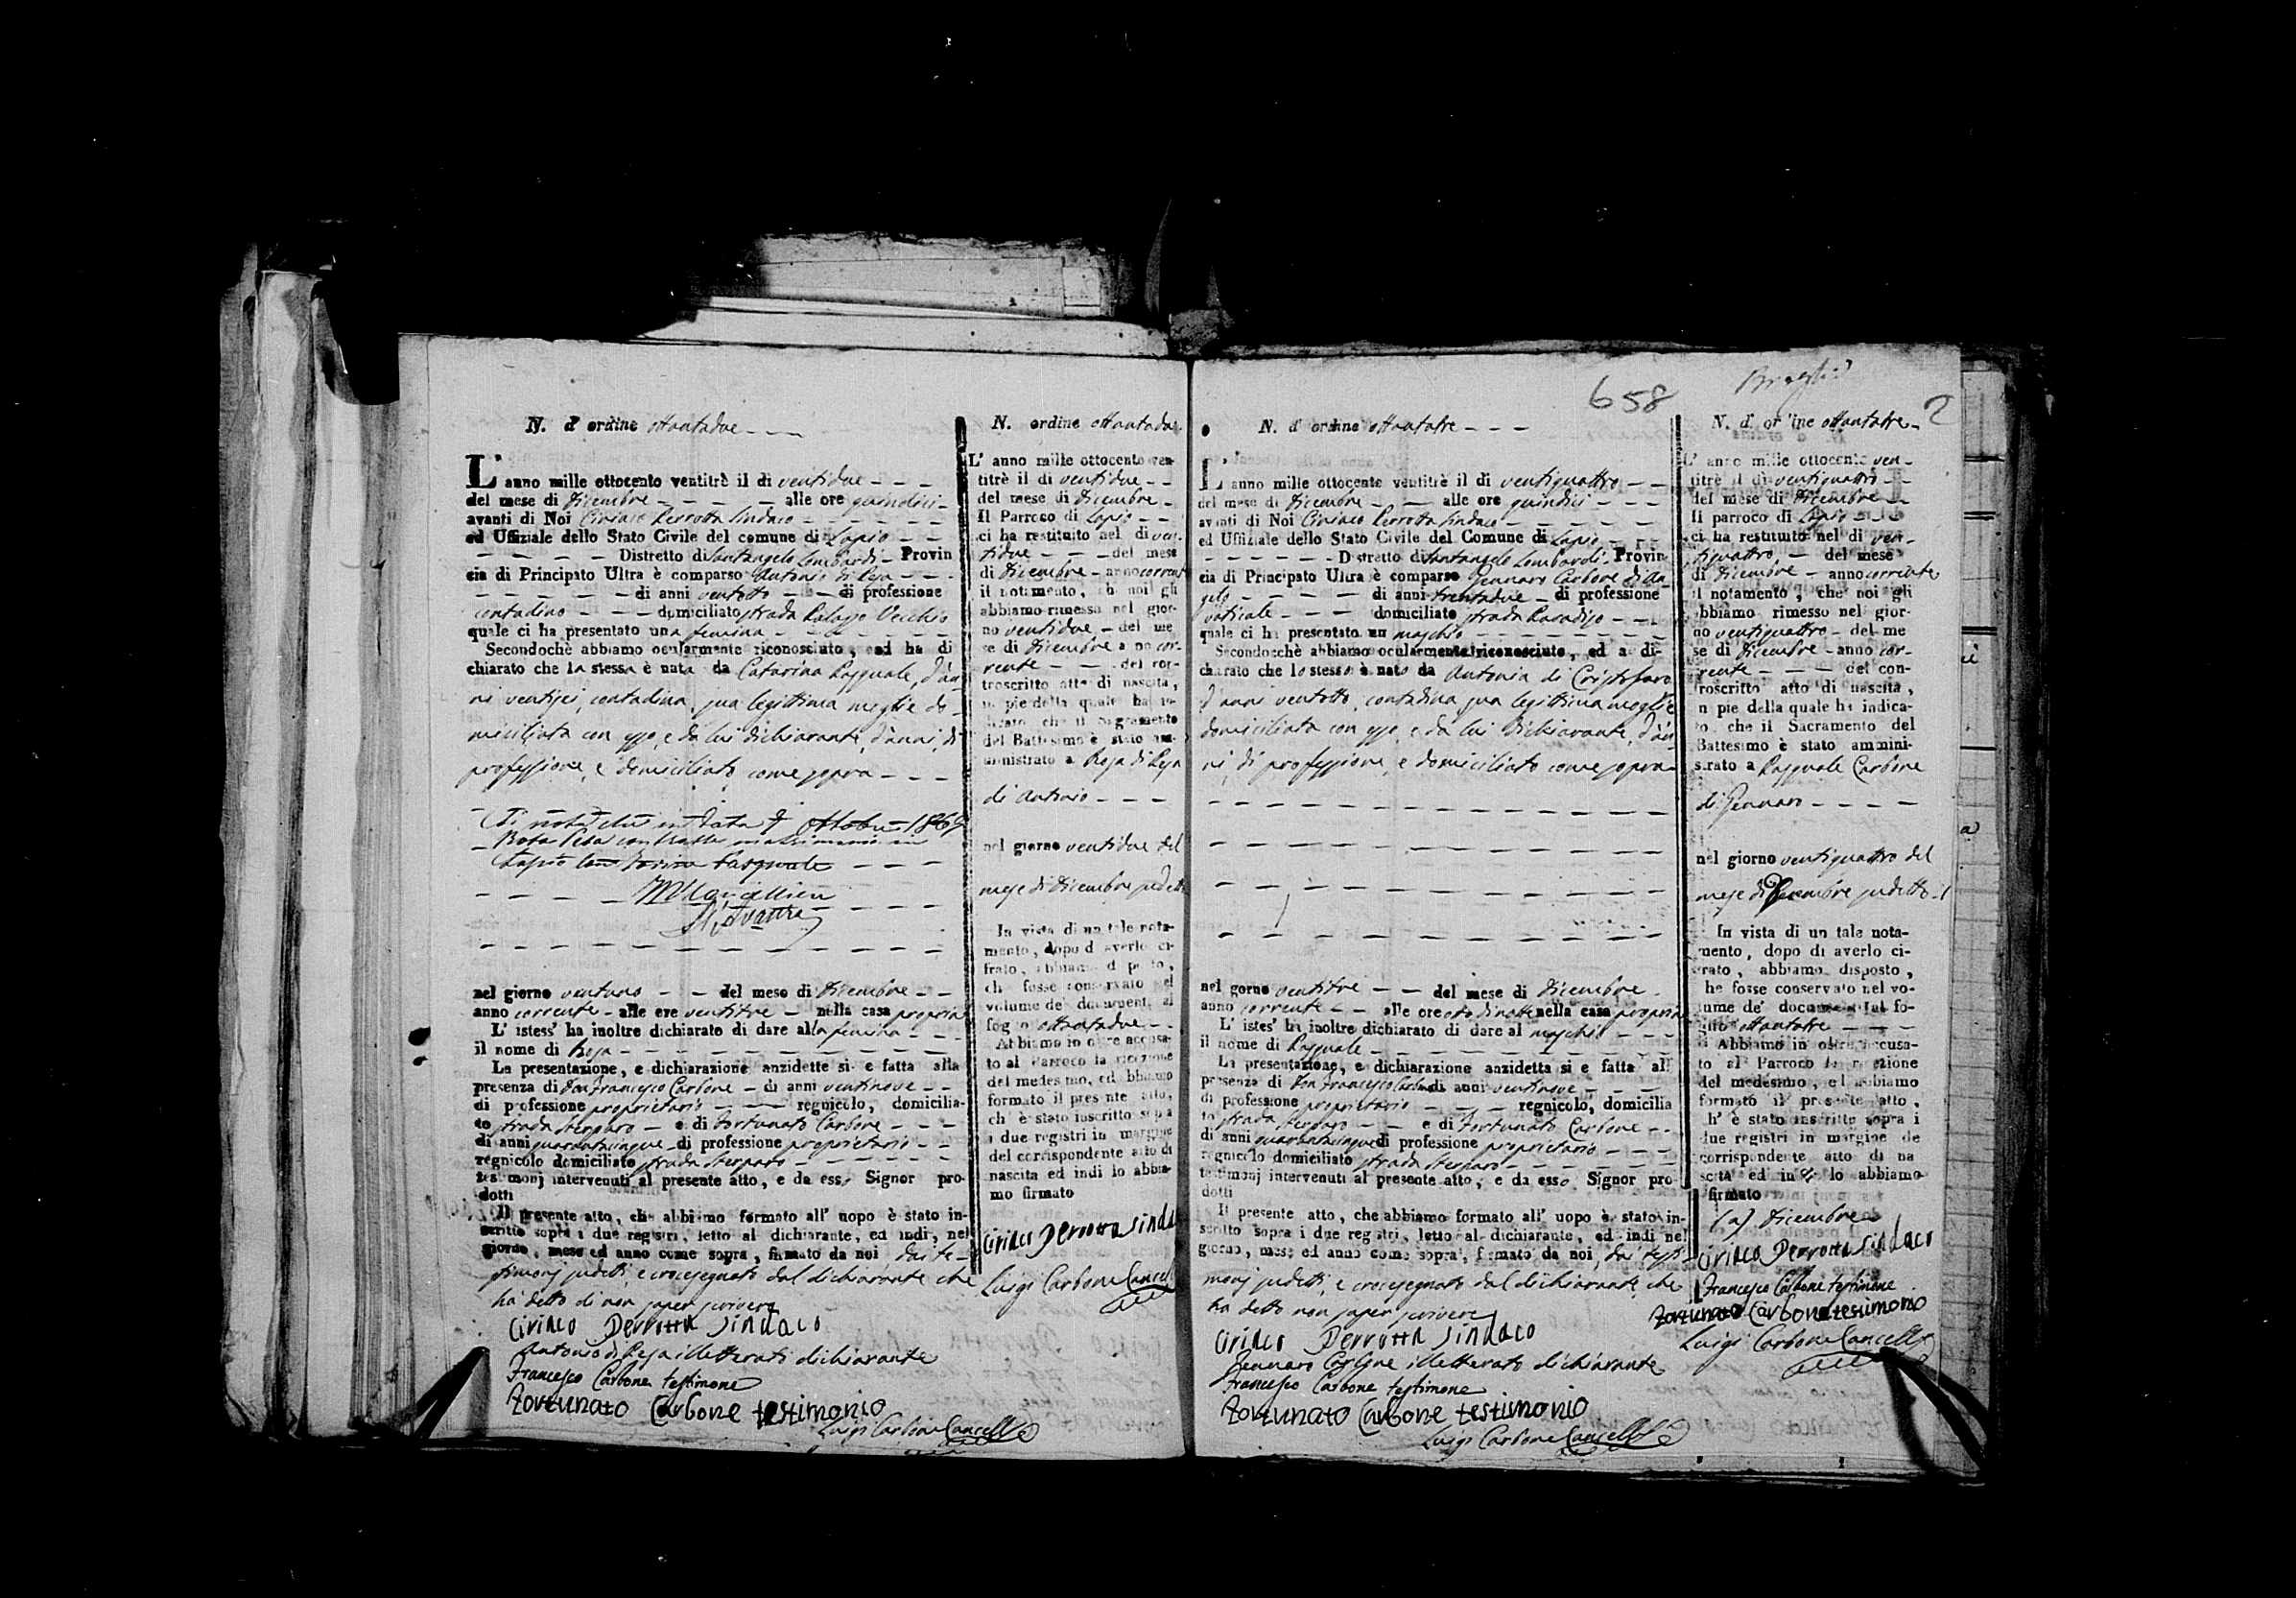 N. d'ordine ottantadue
L'anno mille ottocento ventitrè il di ventidue
del mese di Dicembre alle ore quindici
avanti di Noi Ciriaco Perrotta Sindaco
ed Uffiziale dello Stato Civile del comune di Lapio
Distretto di Santangelo Lombardi Provin
cia di Principato Ultra è comparso Antonio di Reja
di anni ventotto di professione
contadino domiciliato strada Palazzo Vecchio
quale ci ha presentato una femina
Secondochè abbiamo ocularmente riconosciuto, ed ha di
chiarato che la stessa è nata da Catarina Pasquale, d'an-
ni ventisei, contadina, sua legittima moglie do-
miciliata con esso, e da lui dichiarante, d'anni, di
professione, e domiciliato come sopra
Si nota che in data 7 Ottobre 186
contratto matrimonio in
Lapio con Pasquale
nel giorno ventuno del mese di Dicembre
anno corrente alle ore ventitre nella casa propria
L'istess' ha inoltre dichiarato di dare alla femina
il nome di Rosa
La presentazione, e dichiarazione anzidette si e fatta alla
presenza di Don Francesco Carbone di anni ventinove
di professione proprietario regnicolo, domicilia-
to strada Sterparo e di Fortunato Carbone
di anni quarantacinque di professione proprietario
regnicolo domiciliato strada Sterparo
testimonj intervenuti al presente atto, e da esso Signor pro-
dotti
Il presente atto, che abbiamo formato all' uopo è stato in-
scritto sopra i due registri, letto al dichiarante, ed indi, nel
giorno, mese ed anno come sopra, firmato da noi, dai te-
stimonj sudetti, e crocesegnato dal dichiarante che
ha detto di non saper scrivere
Ciriaco Perrotta Sindaco
Antonio di Reja illetterato dichiarante
Francesco Carbone testimone
Fortunato Carbone testimonio
Luigi Carbone Cancell
N. ordine ottantadue
L' anno mille ottocento ven-
titrè il di ventidue
del mese di Dicembre
Il Parroco di Lapio
ci ha restituito nel di ven-
tidue del mese
di Dicembre anno corrente
il notamento, che noi gli
abbiamo rimesso nel gior-
no ventidue del me
se di Dicembre anno cor-
rente del con-
troscritto atto di nascita,
in pie della quale ha in-
dicato che il Sagramento
del Battesimo è stato am-
ministrato a Rosa di Reja
di Antonio
nel giorno ventidue del
mese di Dicembre sudetto
In vista di un tale nota-
mento, dopo d averlo ci-
frato, abbiamo disposto,
che fosse conservato nel
volume de' documenti al
foglio ottantadue
Abbiamo in oltre accusa-
to al Parroco la ricezione
del medesimo, ed abbiamo
formato il presente atto,
ch' è stato inscritto sopra
i due registri in margine
del corrispondente atto di
nascita ed indi lo abbia-
mo firmato
Ciriaco Perrotta Sindaco
Luigi Carbone Cancell
658
2
N. d' ordine ottantatre
L' anno mille ottocento ventitrè il di ventiquattro
del mese di Dicembre alle ore quindici
avanti di Noi Ciriaco Perrotta Sindaco
ed Uffiziale dello Stato Civile del Comune di Lapio
Distretto di Santangelo Lombardi Provin-
cia di Principato Ultra è comparso Gennaro Carbone di An-
gelo di anni trentadue di professione
vaticale domiciliato strada Paradiso
quale ci ha presentato un maschio
Secondochè abbiamo ocularmente riconosciuto, ed a di-
chiarato che lo stesso è nato da Antonia di Cristofaro
d'anni ventotto, contadina sua legittima moglie
domiciliata con esso, e da lui dichiarante, d'an-
ni, di professione, e domiciliato come sopra
nel gorno ventitre del mese di Dicembre
anno corrente alle ore otto di notte nella casa propria
L' istes' ha inoltre dichiarato di dare al maschio
il nome di Pasquale
La presentazione, e dichiarazione anzidetta si e fatta all'
presenza di Don Francesco Carbone di anni ventinove
di professione proprietario regnicolo, domicilia
to strada Sterparo e di Fortunato Carbone
di anni quarantacinque di professione proprietario
regnicolo domiciliato strada Sterparo
testimonj intervenuti al presente atto, e da esso Signor pro-
dotti
Il presente atto, che abbiamo formato all' uopo è stato in-
scritto sopra i due registri, letto al dichiarante, ed indi nel
giorno, mese ed anno come sopra, firmato da noi, dai testi-
monj sudetti, e crocesegnato dal dichiarante che
ha detto non saper scrivere
Ciriaco Perrotta Sindaco
Gennaro Carbone illetterato dichiarante
Francesco Carbone testimone
Fortunato Carbone testimonio
Luigi Carbone Cancell
N. d' or'ine ottantatre
L' anno mille ottocento ven-
titrè il di ventiquattro
del mese di Dicembre
Il parroco di Lapio
ci ha restituito nel di ven-
tiquattro del mese
di Dicembre anno corrente
il notamento, che noi gli
abbiamo rimesso nel gior-
no ventiquattro del me
se di Dicembre anno cor-
rente del con-
troscritto atto di nascita,
in pie della quale ha indica-
to che il Sacramento del
Battesimo è stato ammini-
strato a Pasquale Carbone
di Gennaro
nel giorno ventiquattro del
mese di Decembre sudetto
In vista di un tale nota-
mento, dopo di averlo ci-
frato, abbiamo disposto,
he fosse conservato nel vo-
lume de' documenti al fo-
glio ottantatre
Abbiamo in oltre accusa-
to al Parroco la ricezione
del medesimo, ed abbiamo
formato il presente atto,
h' è stato inscritto sopra i
due registri in margine de
corrispondente atto di na
scita ed indi lo abbiamo
firmato
(a) Dicembre
Ciriaco Perrotta Sindaco
Francesco Carbone testimone
Fortunato Carbone testimonio
Luigi Carbone Cancell